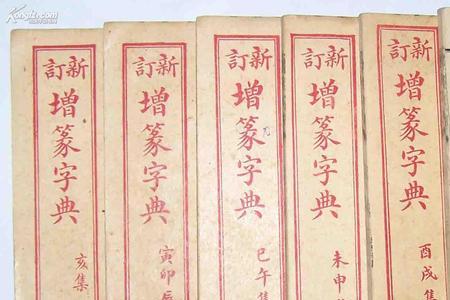 Kongfz.com
新訂
增篆字典
亥集
新訂
增篆字典
寅卯辰
新訂
增篆字典
巳午集
新訂
增篆字典
未申
新訂
增篆字典
酉戌集